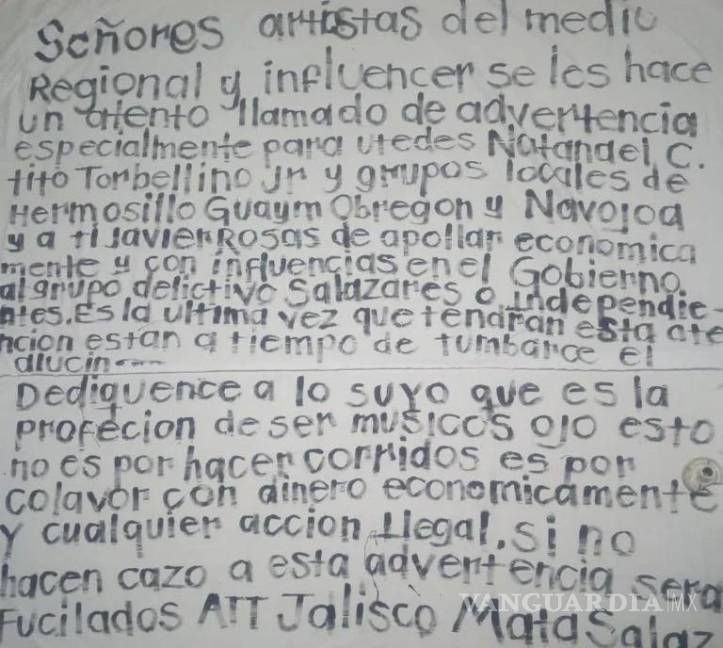 Señores artistas del medio
Regional y influencer se les hace
un atento llamado de advertencia
especialmente para utedes Natanael C.
tito Torbellino Jr y grupos locales de
Hermosillo Guaym Obregon y Navojoa
y a ti Javier Rosas de apollar economica
mente y con influencias en el Gobierno.
al grupo delictivo Salazares o Independie
ntes. Es la ultima vez que tendran esta ate
ncion estan a tiempo de tumbarce el
alucin----
Dediquence a lo suyo que es la
profecion de ser musicos ojo esto
no es por hacer corridos es por
colavor con dinero economicamente
y cualquier accion Ilegal. si no
hacen cazo a esta advertencia sera
Fucilados ATT Jalisco Mata Salaz
VANGUARDIA MX